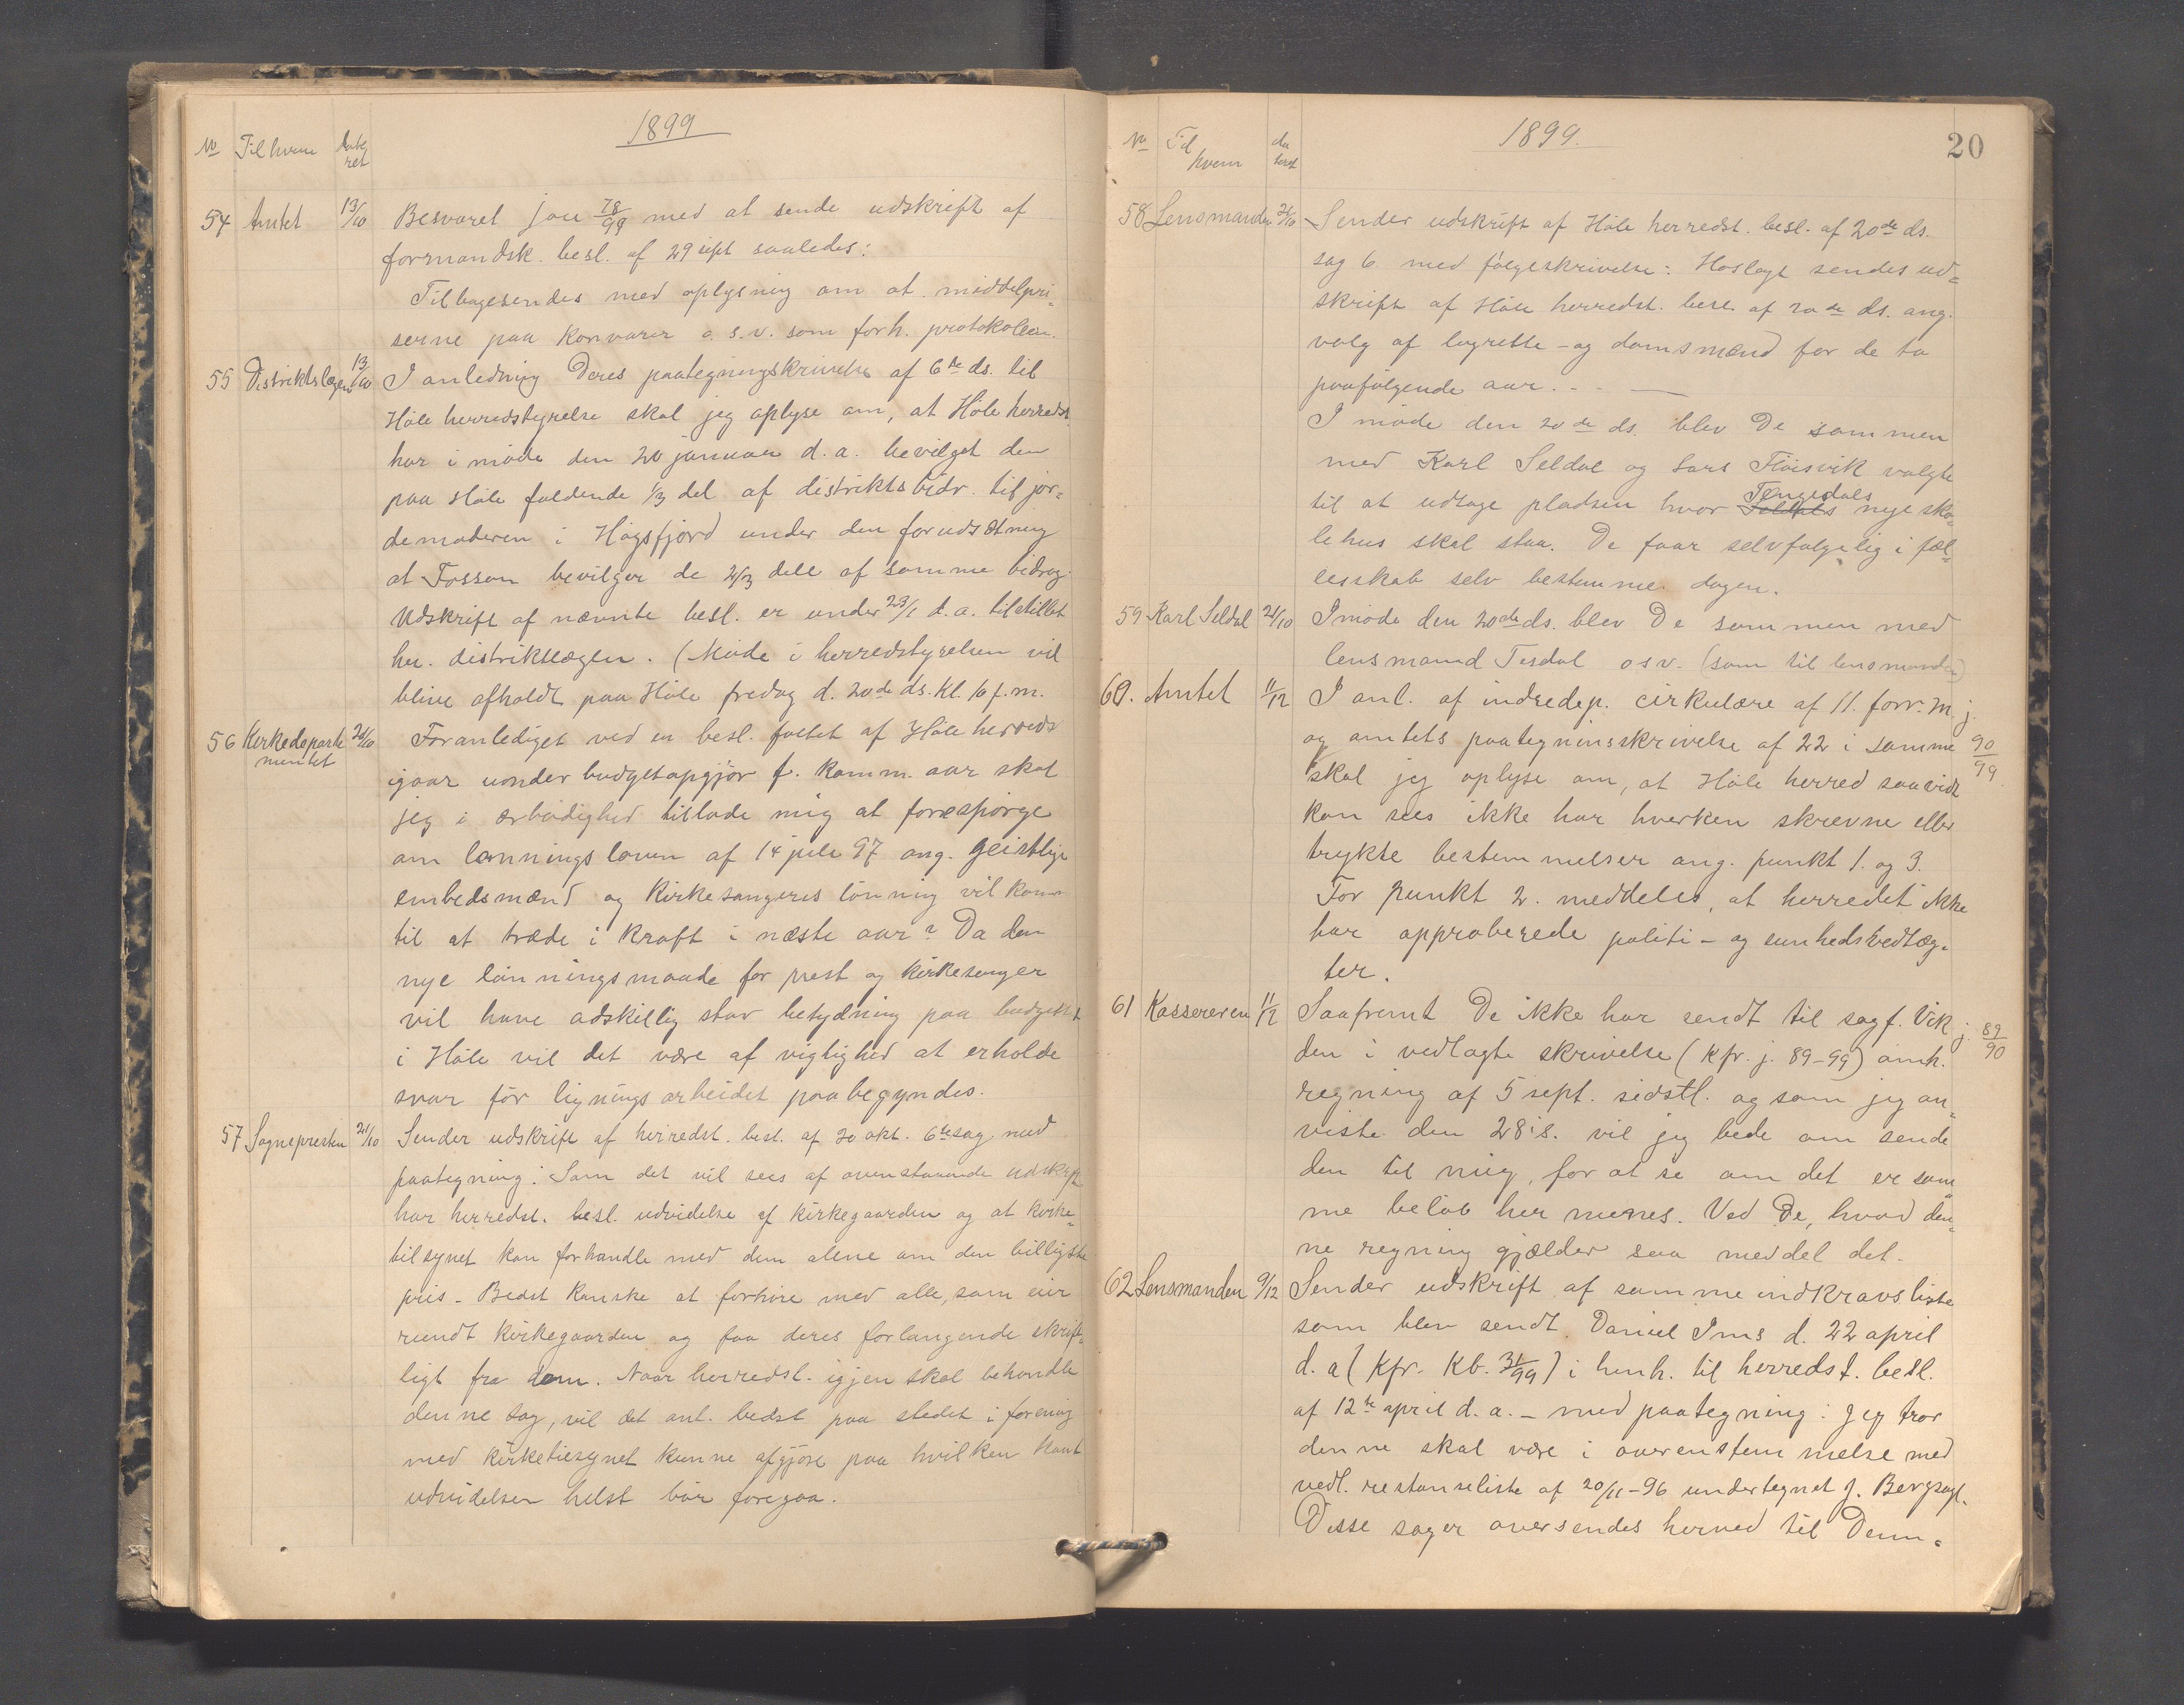 1899
No Til hvem Date ret
54 Amtet 13/10 Besvaret jou 78/99 med at sende udskrift af
formandsk. besl. af 29 sept saaledes:
Tilbagesendes med oplysning om at middelpri-
serne paa kornvarer o. s. v. som forh. protokollen.
55 Distriktslægen 13/10 I anledning Deres paategningskrivelse af 6te ds. til
Høle herredstyrelse skal jeg oplyse om, at Høle herredst
har i møde den 20 januar d. a. bevilget den
paa Høle faldende 1/3 del af distriktsbidr. til jor-
demoderen i Høgsfjord under den forudsætning
at Fossan bevilger de 2/3 dele af samme bidrag.
Udskrift af nævnte besl. er under 23/1 d. a. tilstillet
hr. distriktslægen. (Møde i herredstyrelsen vil
blive afholdt paa Høle fredag d. 20de ds. kl. 10 f. m.
56 Kirkedeparte mentet 21/10 Foranlediget ved en besl. fattet af Høle herreds
igaar uonder budgetopgjør f. komm. aar skal
jeg i ærbødighed tillade mig at forespørge
om lønningsloven af 14 juli 97 ang. geistlige
embedsmænd og kirkesangeres lønning vil komm
til at træde i kraft i næste aar? Da den
nye lønningsmaade for prest og kirkesanger
vil have adskillig stor betydning paa budgettet
i Høle vil det være af vigtighed at erholde
svar før ligningsarbeidet paabegyndes.
57 Sognepresten 21/10 Sender udskrift af herredst. besl. af 20 okt. 6te sag med
paategning: Som det vil sees af ovenstaaende udskrift
har herredst. besl. udvidelse af kirkegaarden og at kirke-
tilsynet kan forhandle med dem alene om den billigste
pris. Bedst kanske at forhøre med alle, som eier
rundt kirkegaarden og faa deres forlangende skrift-
ligt fra dem. Naar herredst. igjen skal behandle
denne sag, vil det ant. bedst paa stedet i forening
med kirketilsynet kunne afgjøre paa hvilken kant
udvidelsen helst bør foregaa.
1899. 20
No Til hvem da teret
58 Lensmanden 21/10 Sender udskrift af Høle herredst. besl. af 20de ds.
sag 6 med følgeskrivelse: Hoslagt sendes ud-
skrift af Høle herredst. besl. af 20de ds. ang.
valg af lagrette- og domsmænd for de to
paafølgende aar. - -
I møde den 20de ds. blev De sammen
med Karl Seldal og Lars Fløisvik valgte
Tengesdals
til at udtage pladsen hvor nye sko-
lehus skal staa. De faar selvfølgelig i fæl-
lesskab selv bestemme dagen.
59 Karl Seldal 21/10 I møde den 20de ds. blev De sammen med
lensmand Tesdal osv. (som til lensmanden)
60. Amtet 11/12 I anl. af indredep. cirkulære af 11. forr. m. j.
og amtets paategninsskrivelse af 22 i samme 90/99
skal jeg oplyse om, at Høle herred saavidt
kan sees ikke har hverken skrevne eller
trykte bestemmelser ang. punkt 1. og 3.
For punkt 2. meddeles, at herredet ikke
har approberede politi- og sunhedsvedtæg-
ter.
61 Kassereren 11/12 Saafremt De ikke har sendt til sagf. Vik j. 89/90
den i vedlagte skrivelse (kfr. j. 89-99) omh.
regning af 5 sept. sidstl. og som jeg an-
viste den 28 i s. vil jeg bede om sende
den til mig, for at se om det er sam
me beløb her menes. Ved De, hvad den-
ne regning gjælder saa meddel det.
62 Lensmanden 9/12 Sender udskrift af samme indkravsliste
som blev sendt Daniel Ims d. 22 april
d. a (kfr. Kb. 31/99) i henh. til herredst. besl.
af 12te april d. a. - med paategning: Jeg tror
denne skal være i overenstemmelse med
vedl. restanseliste af 20/11-96 undertegnet J. Bergsagl.
Disse sager oversendes herved til Dem.